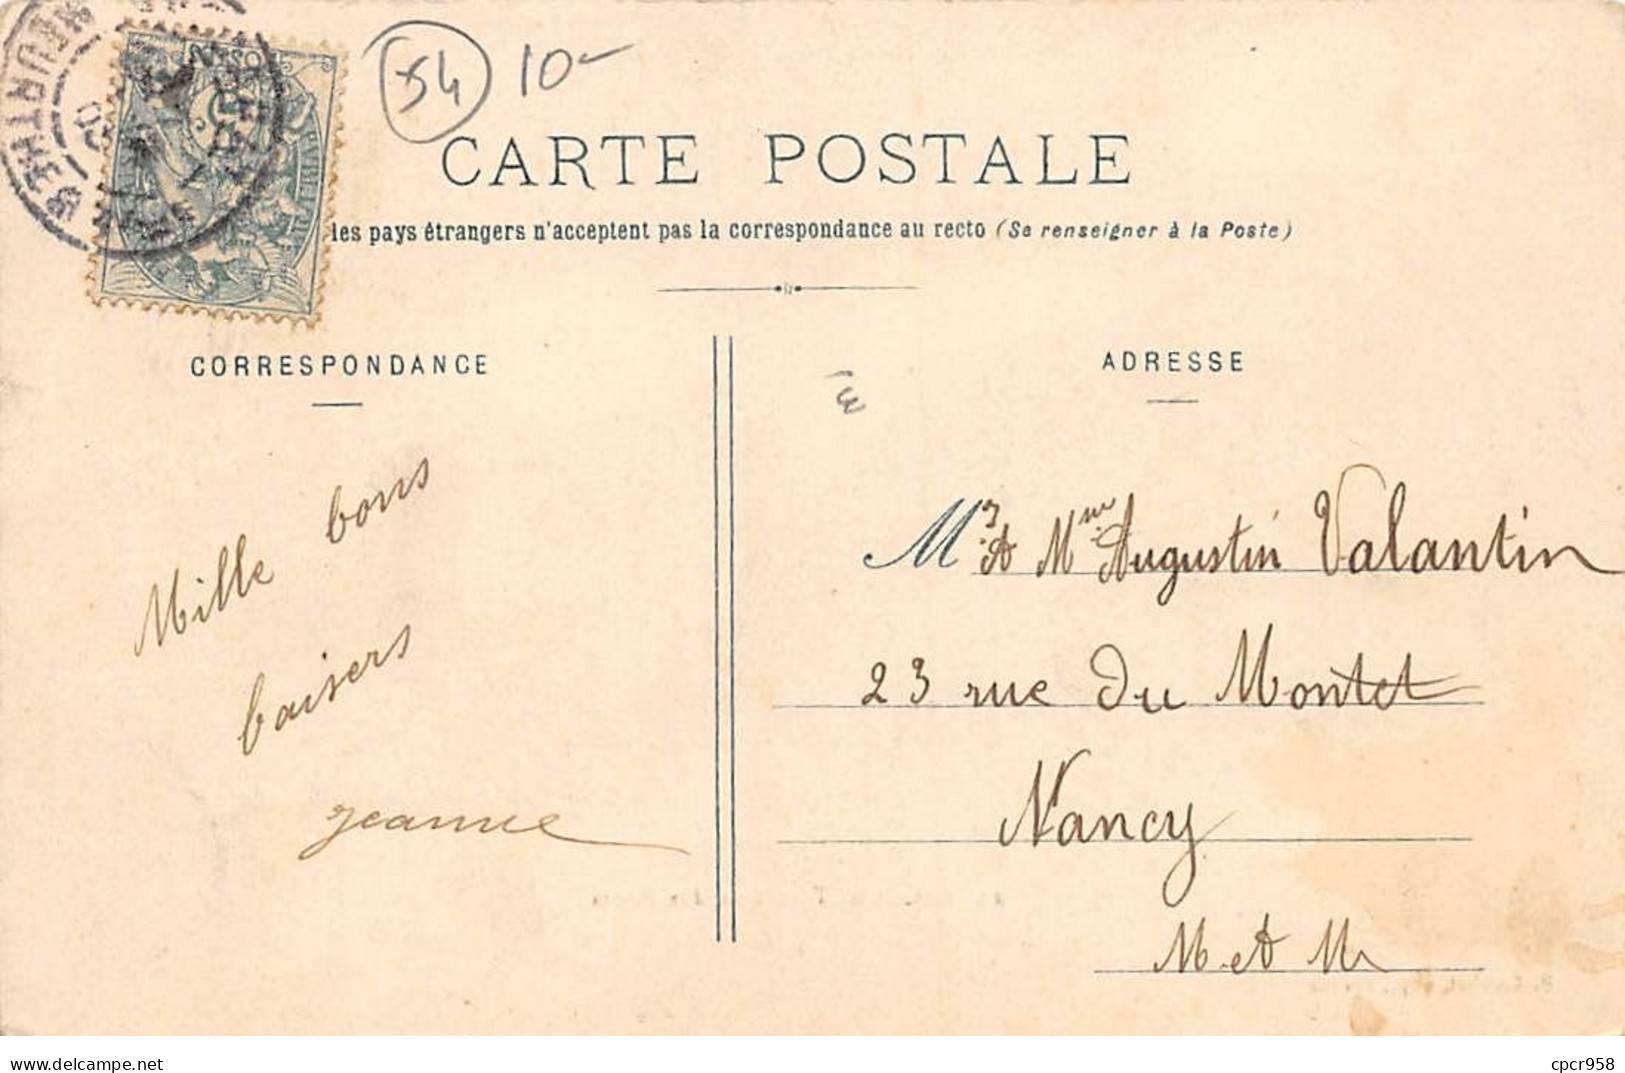 54 10-
CARTE POSTALE
les pays étrangers n'acceptent pas la correspondance au recto (Se renseigner à la Poste)
CORRESPONDANCE
Mille bons
baisers
Jeanne
ADRESSE
Mr et Mme Augustin Valantin
23 rue du Montet
Nancy
M et M
www.delcampe.net
cpcr958